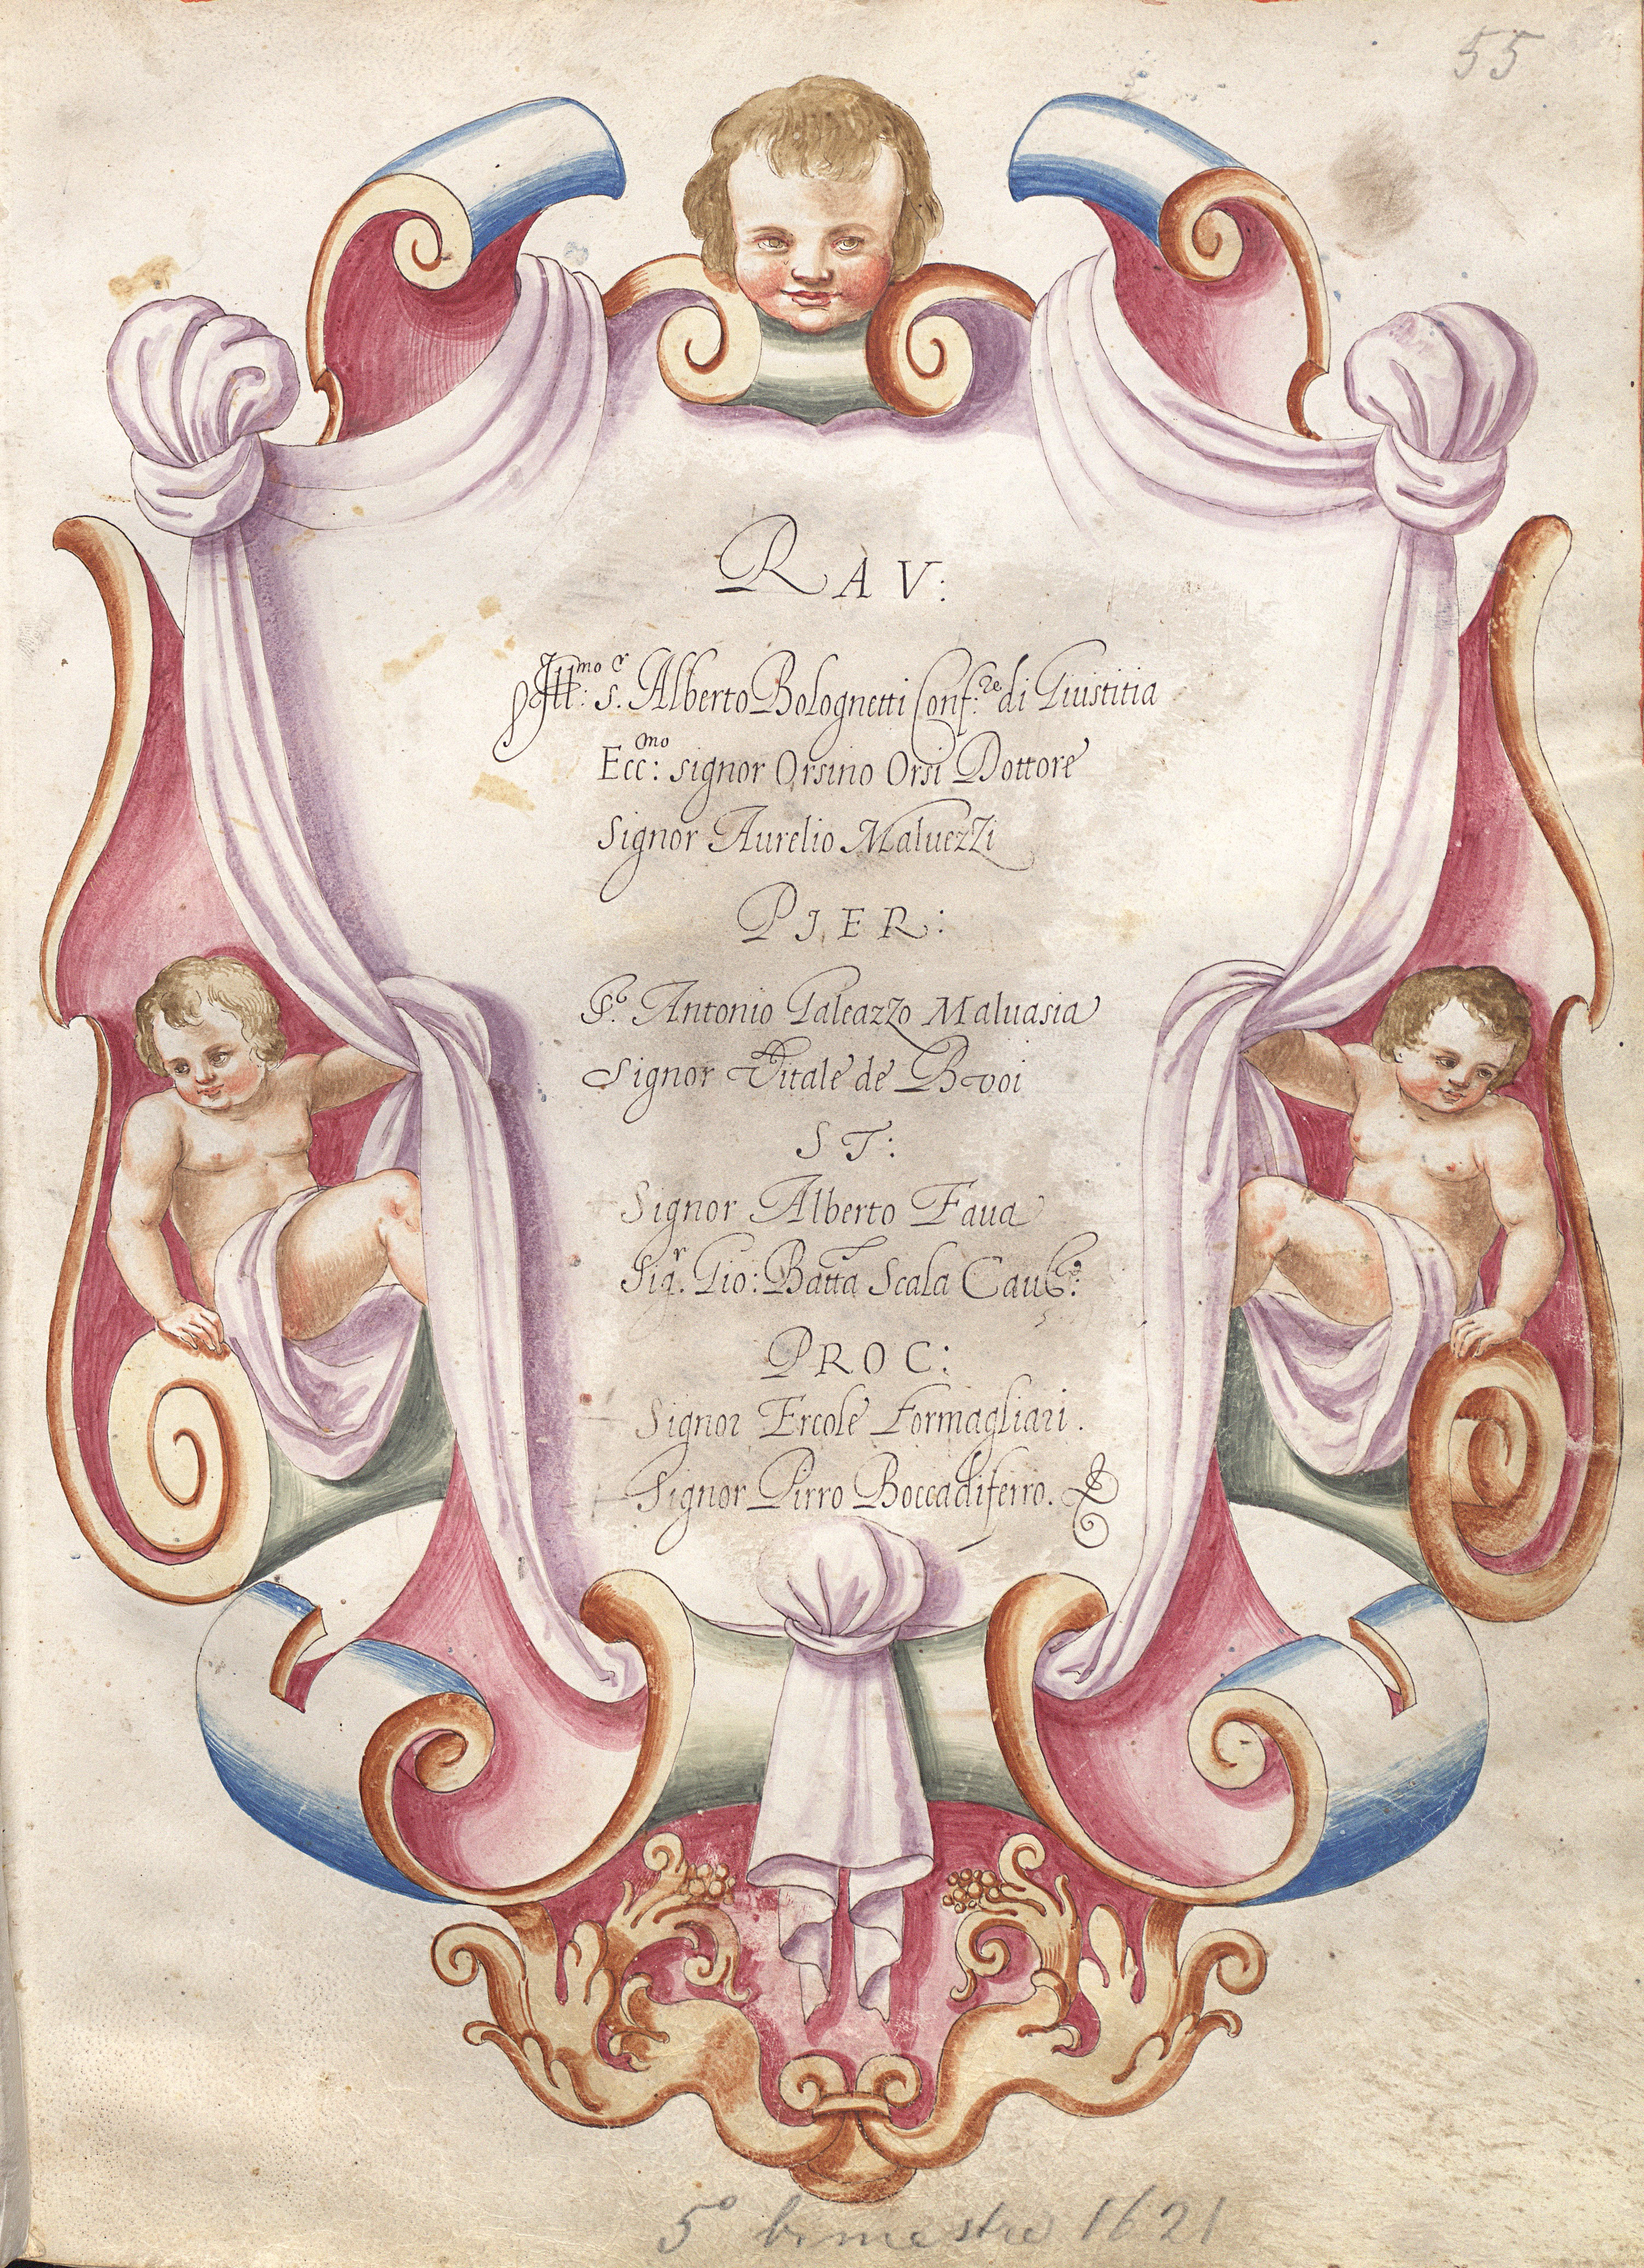 55
RAV:
Ill:mo s.r Alberto Bolognetti Conf:re di Giustitia
Ecc:mo signor Orsino Orsi Dottore
Signor Aurelio Maluezzi
PIER:
S.r Antonio Galeazzo Maluasia
Signor Vitale de Buoi
ST:
Signor Alberto Faua
Sig.r Gio: Batta Scala Cau.re
PROC:
Signor Ercole Formagliari.
Signor Pirro Boccadiferro.
5° bimestre 1621